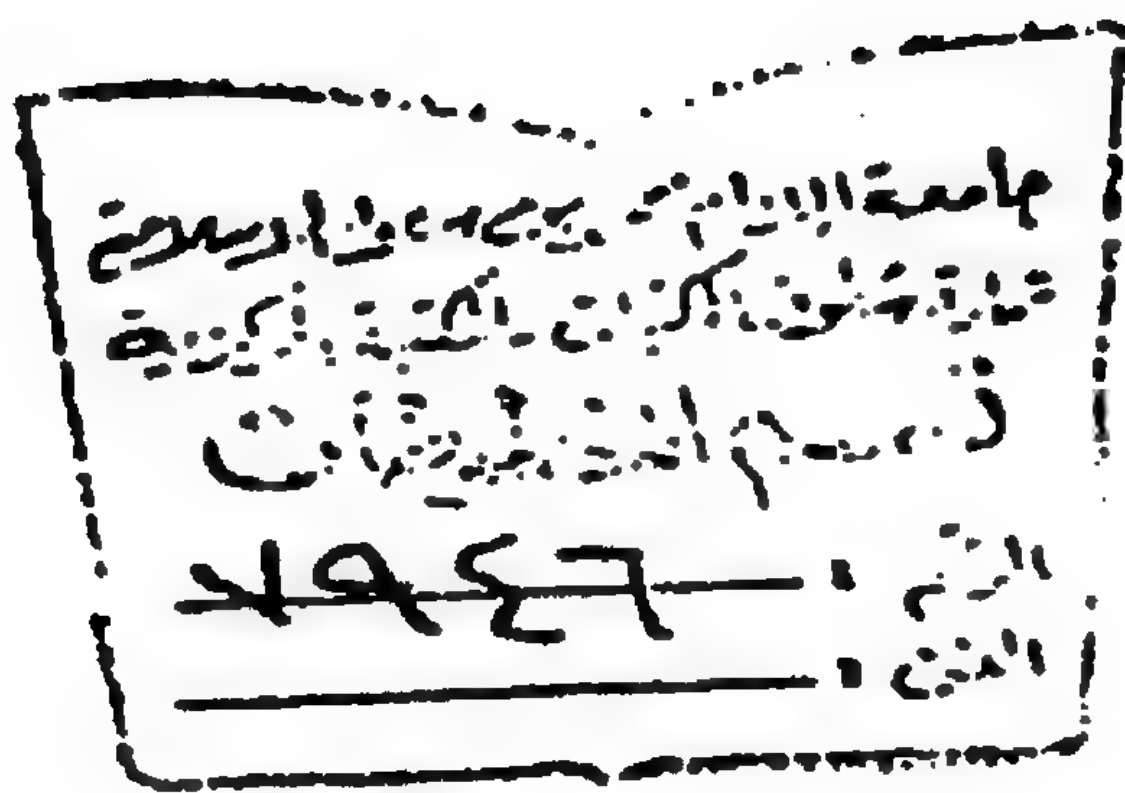 جامعة الإمام محمد بن سعود الإسلامية
عمادة شؤون المكتبات المكتبة المركزية
قسم المخطوطات
الرقم :
الفن :